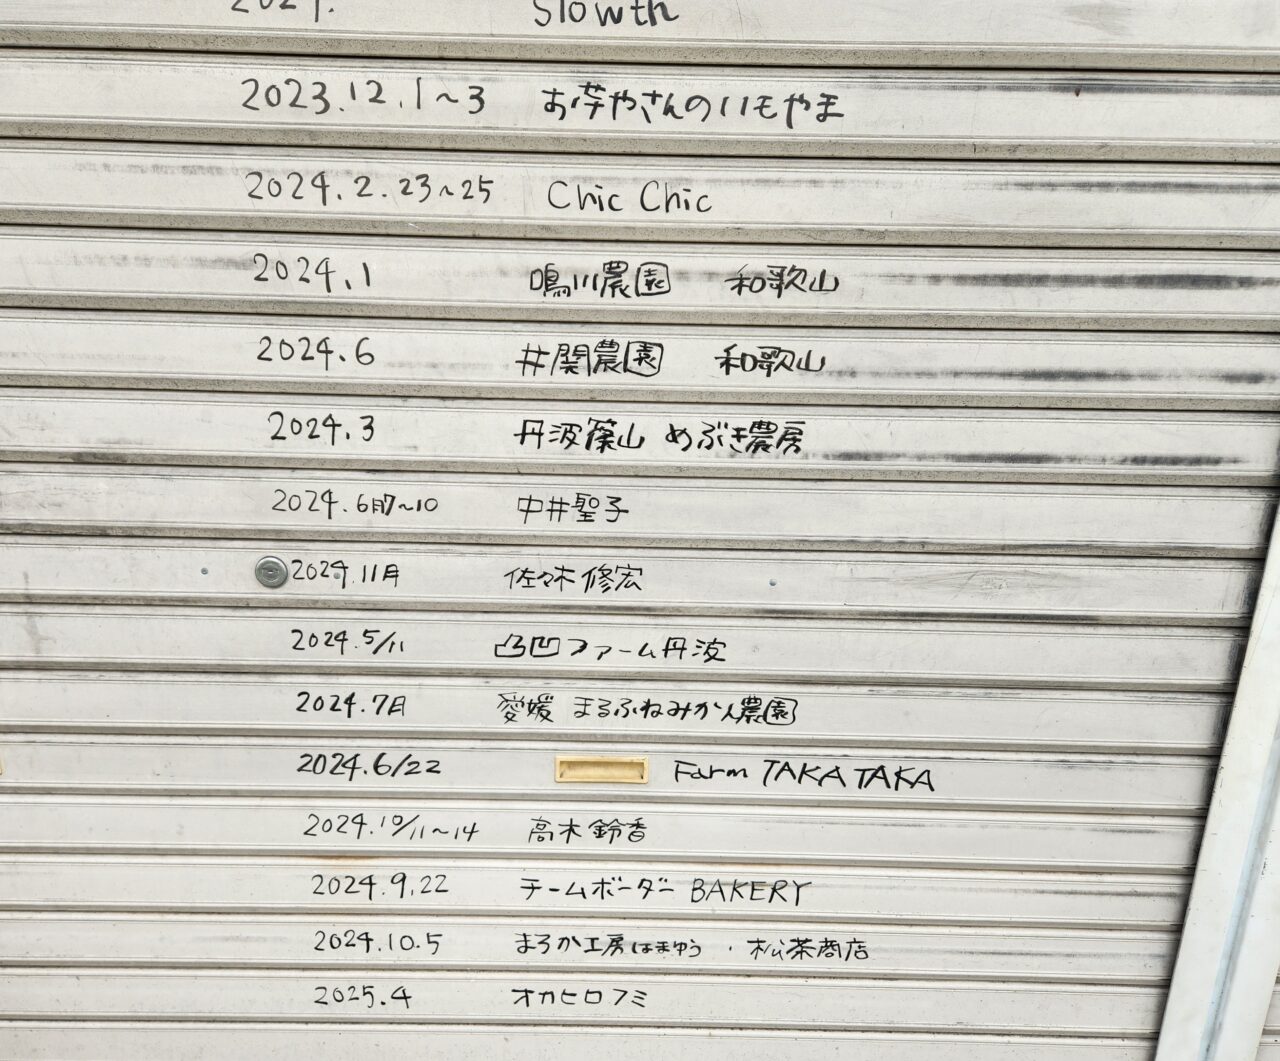 Slowth
2023.12.1～3 お芋やさんのいもやま
2024.2.23～25 Chic Chic
2024.1 鳴川農園 和歌山
2024.6 井関農園 和歌山
2024.3 丹波篠山 めぶき農房
2024.6月7～10 中井聖子
2024.11月 佐々木修宏
2024.5/11 凸凹ファーム丹波
2024.7月 愛媛 まるふねみかん農園
2024.6/22 Farm TAKATAKA
2024.10/11～14 高木鈴香
2024.9.22 チームボーダー BAKERY
2024.10.5 まろか工房はまゆう ・松茶商店
2025.4 オカヒロフミ